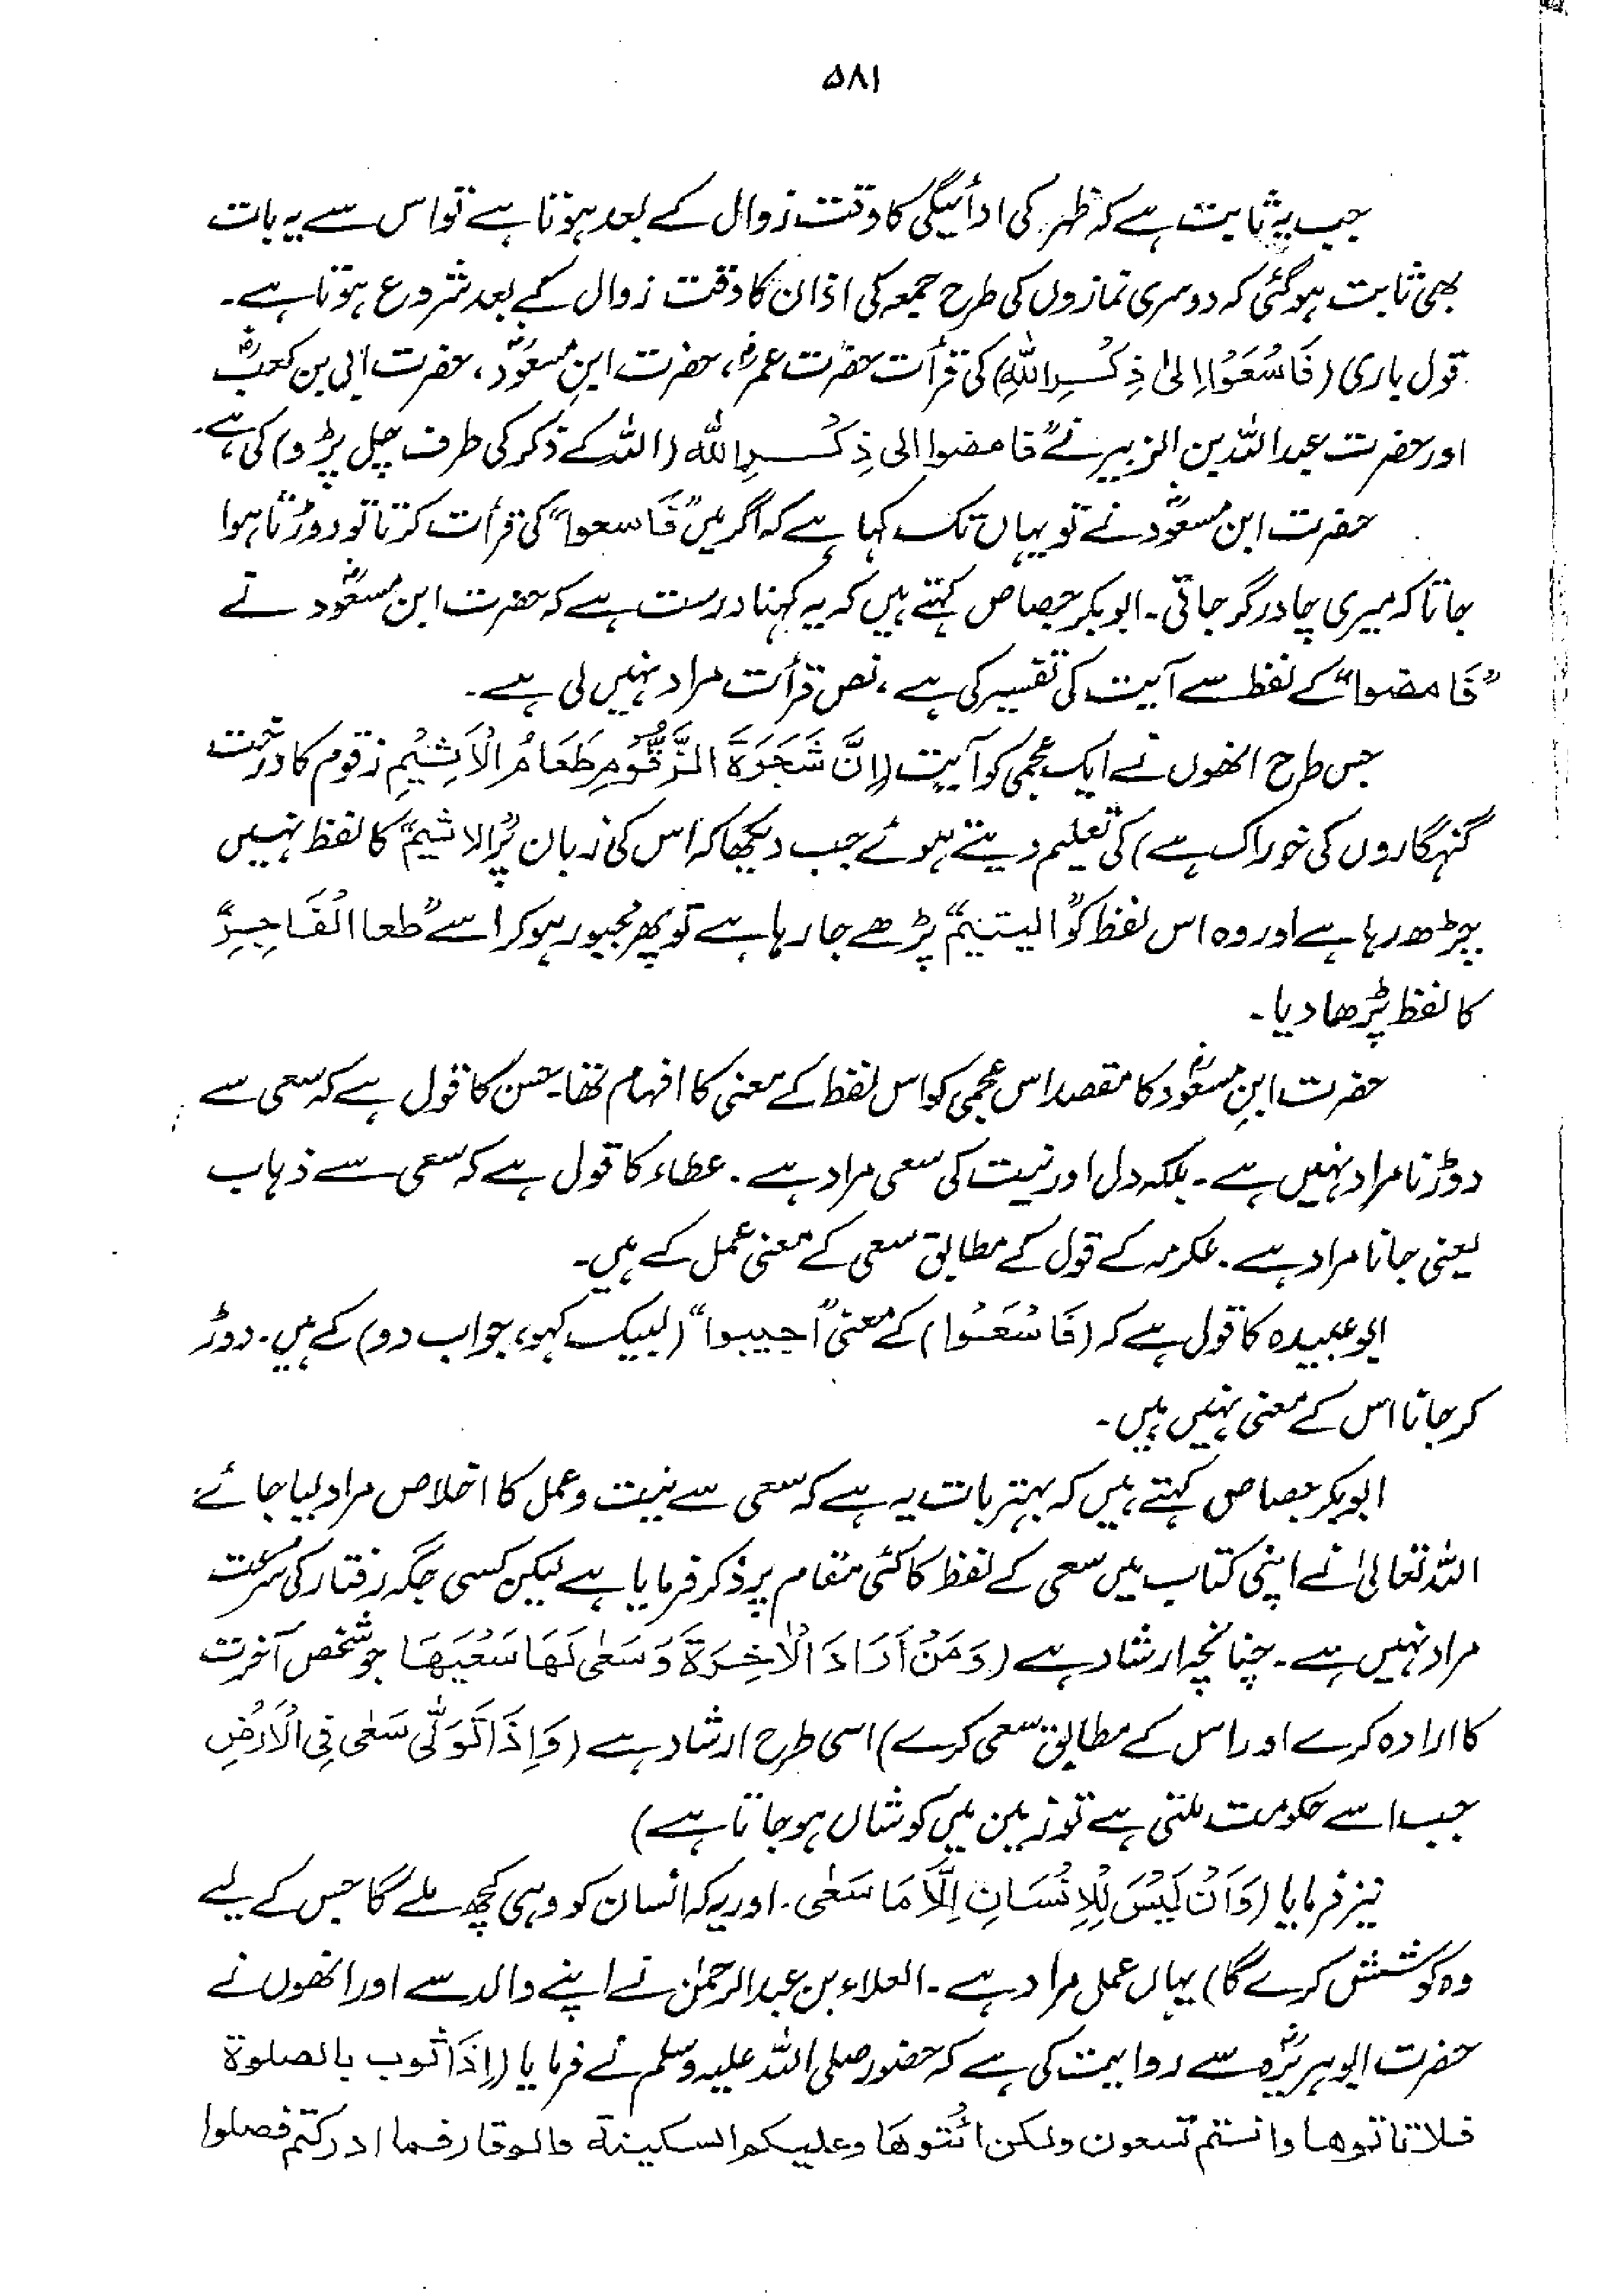 ۵۸۱
جب یہ ثابت ہے کہ ظہر کی ادائیگی کا وقت زوال کے بعد ہوتا ہے تو اس سے یہ بات
بھی ثابت ہوگئی کہ دوسری نمازوں کی طرح جمعہ کی اذان کا وقت زوال کے بعد شروع ہوتا ہے۔
قول باری (فَاسْعَوْا اِلیٰ ذِکْرِ اللّٰہِ) کی قرأت حضرت عمرؓ، حضرت ابنِ مسعودؓ، حضرت ابی بن کعبؓ
اور حضرت عبداللہ بن الزبیر نے "فامضوا الی ذِکْرِ اللہ (اللہ کے ذکر کی طرف چل پڑو) کی ہے۔
حضرت ابن مسعودؓ نے تو یہاں تک کہا ہے کہ اگر میں "فَاسعوا" کی قرأت کرتا تو دوڑتا ہوا
جاتا کہ میری چادر گر جاتی۔ ابوبکر جصاص کہتے ہیں کہ یہ کہنا درست ہے کہ حضرت ابن مسعودؓ نے
"فَامضوا" کے لفظ سے آیت کی تفسیر کی ہے، نص قرأت مراد نہیں لی ہے۔
جس طرح انھوں نے ایک عجمی کو آیت (اِنَّ شَجَرَۃَ الزَّقُّوْمِ طَعَامُ الْاَثِیْمِ زقوم کا درخت
گنہگاروں کی خوراک ہے) کی تعلیم دیتے ہوئے جب دیکھا کہ اس کی زبان پر "الاثیم" کا لفظ نہیں
چڑھ رہا ہے اور وہ اس لفظ کو "الیتیم" پڑھے جا رہا ہے تو پھر مجبور ہو کر اسے "طعا الْفَاجِرِ"
کا لفظ پڑھا دیا۔
حضرت ابنِ مسعودؓ کا مقصد اس عجمی کو اس لفظ کے معنی کا افہام تھا۔ حسن کا قول ہے کہ سعی سے
دوڑنا مراد نہیں ہے۔ بلکہ دل اور نیت کی سعی مراد ہے۔ عطاء کا قول ہے کہ سعی سے ذہاب
یعنی جانا مراد ہے۔ عکرمہ کے قول کے مطابق سعی کے معنی عمل کے ہیں۔
ابوعبیدہ کا قول ہے کہ (فَاسْعَوْا) کے معنی "اجیبوا" (لبیک کہو، جواب دو) کے ہیں۔ دوڑ
کر جانا اس کے معنی نہیں ہیں۔
ابوبکر جصاص کہتے ہیں کہ بہتر بات یہ ہے کہ سعی سے نیت و عمل کا اخلاص مراد لیا جائے
اللہ تعالیٰ نے اپنی کتاب میں سعی کے لفظ کا کئی مقام پر ذکر فرمایا ہے لیکن کسی جگہ رفتار کی سرعت
مراد نہیں ہے۔ چنانچہ ارشاد ہے (وَمَنْ اَرَادَ الْاٰخِرَۃَ وَسَعٰی لَھَا سَعْیَھَا جو شخص آخرت
کا ارادہ کرے اور اس کے مطابق سعی کرے) اسی طرح ارشاد ہے (وَاِذَا تَوَلّٰی سَعٰی فِی الْاَرْضِ
جب اسے حکومت ملتی ہے تو زمین میں کوشاں ہو جاتا ہے)
نیز فرمایا (وَاَنْ لَیْسَ لِلْاِنْسَانِ اِلَّا مَا سَعٰی۔ اور یہ کہ انسان کو وہی کچھ ملے گا جس کے لیے
وہ کوشش کرے گا) یہاں عمل مراد ہے۔ العلاء بن عبدالرحمٰن نے اپنے والد سے اور انھوں نے
حضرت ابوہریرہؓ سے روایت کی ہے کہ حضور صلی اللہ علیہ وسلم نے فرمایا (اِذَا ثوب بالصلوۃ
فلا تاتوھا وانتم تسعون ولکن ائتوھا وعلیکم السکینۃ والوقار فما ادرکتم فصلوا